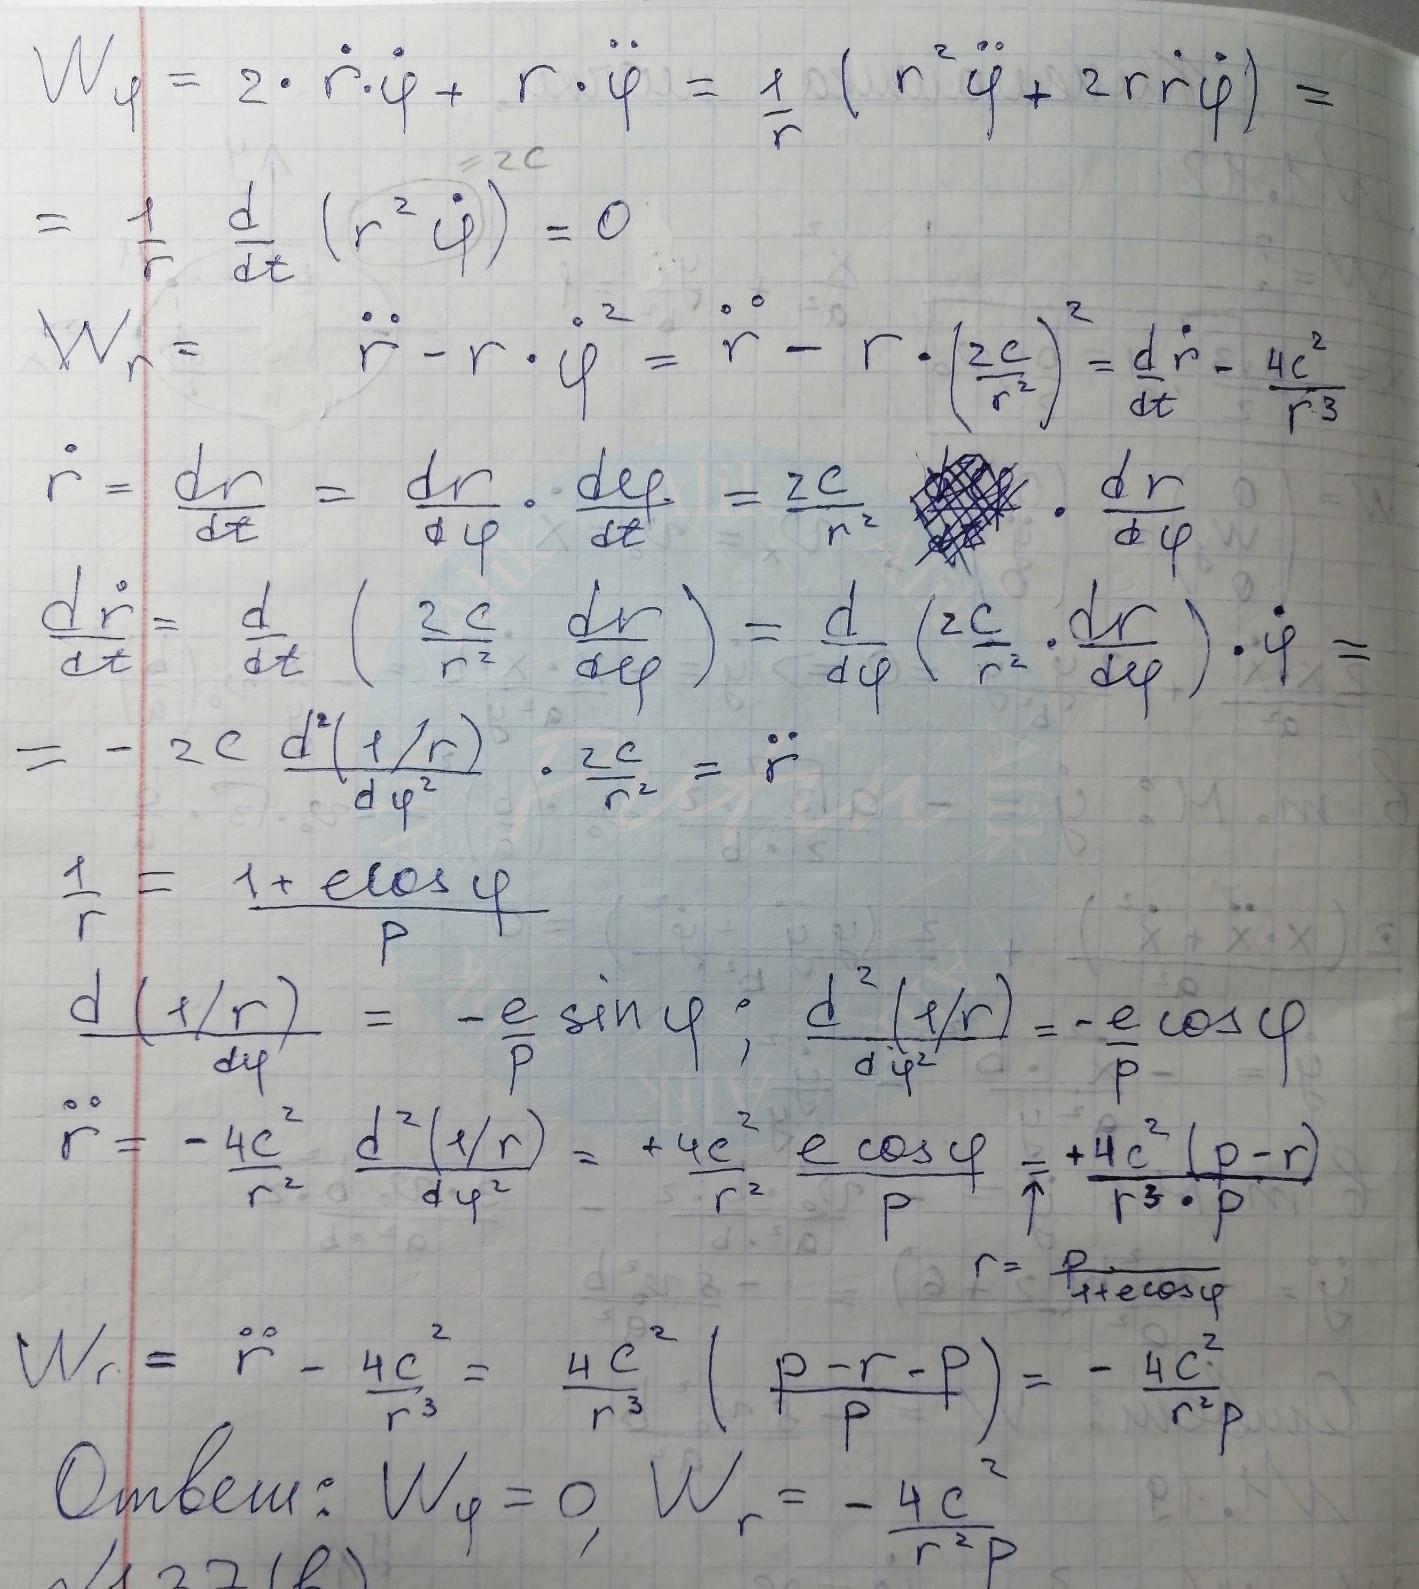 Wφ = 2·ṙ·φ̇ + r·φ̈ = 1/r (r²φ̈ + 2rṙφ̇) =
= 2c
= 1/r d/dt (r²φ̇) = 0
Wr = r̈ - r·φ̇² = r̈ - r·(2c/r²)² = d/dt ṙ - 4c²/r³
ṙ = dr/dt = dr/dφ · dφ/dt = 2c/r² · dr/dφ
dṙ/dt = d/dt (2c/r² dr/dφ) = d/dφ (2c/r² · dr/dφ) · φ̇ =
= - 2c d²(1/r)/dφ² · 2c/r² = r̈
1/r = 1+ecosφ/p
d(1/r)/dφ = -e/p sinφ; d²(1/r)/dφ² = -e/p cosφ
r̈ = -4c²/r² d²(1/r)/dφ² = +4c²/r² ecosφ/p = +4c²(p-r)/r³·p
↑
r = p/1+ecosφ
Wr = r̈ - 4c²/r³ = 4c²/r³ (p-r-p/p) = - 4c²/r²p
Ответ: Wφ = 0, Wr = - 4c²/r²p